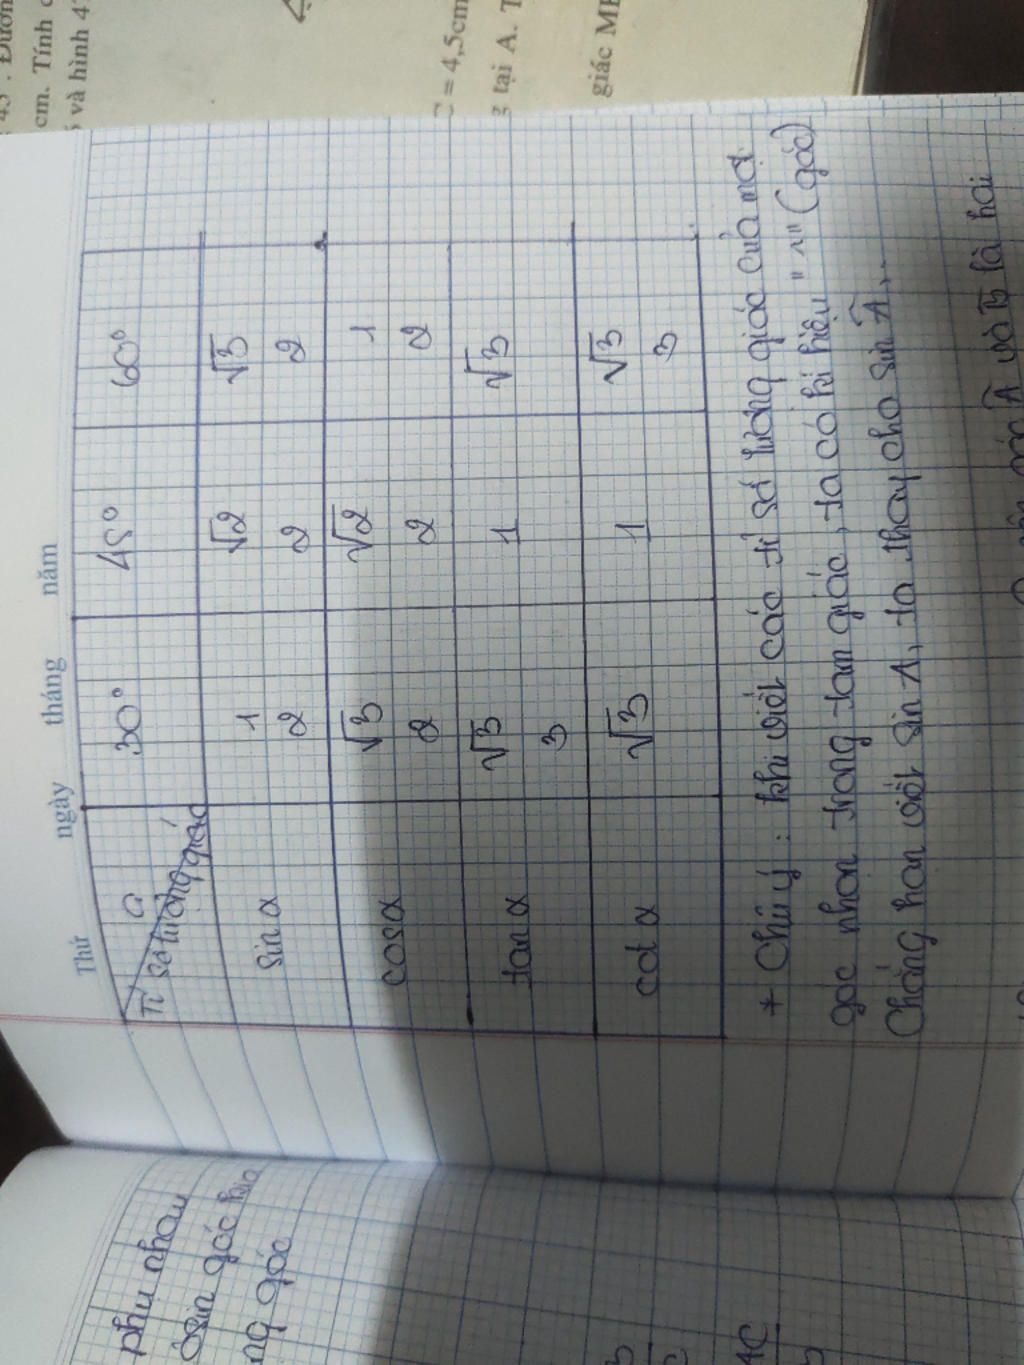 Thứ ngày tháng năm
α 30° 45° 60°
Tỉ số lượng giác
sin α 1/2 √2/2 √3/2
cos α √3/2 √2/2 1/2
tan α √3/3 1 √3
cot α √3 1 √3/3
* Chú ý : khi viết các tỉ số lượng giác của một
góc nhọn trong tam giác, ta có kí hiệu "^" (góc)
Chẳng hạn viết sin A, ta thay cho sin Â,
góc Â và B̂ là hai
phụ nhau
sin góc kia
góc
cm. Tính
và hình 4
C = 4,5cm
tại A. T
giác ME